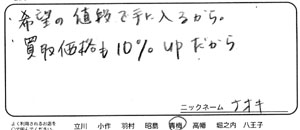 ・希望の値段で手に入るから。
・買取価格も10% upだから
ニックネーム ナオキ
よく利用されるお店を
立川 小作 羽村 昭島 青梅 高幡 堀之内 八王子